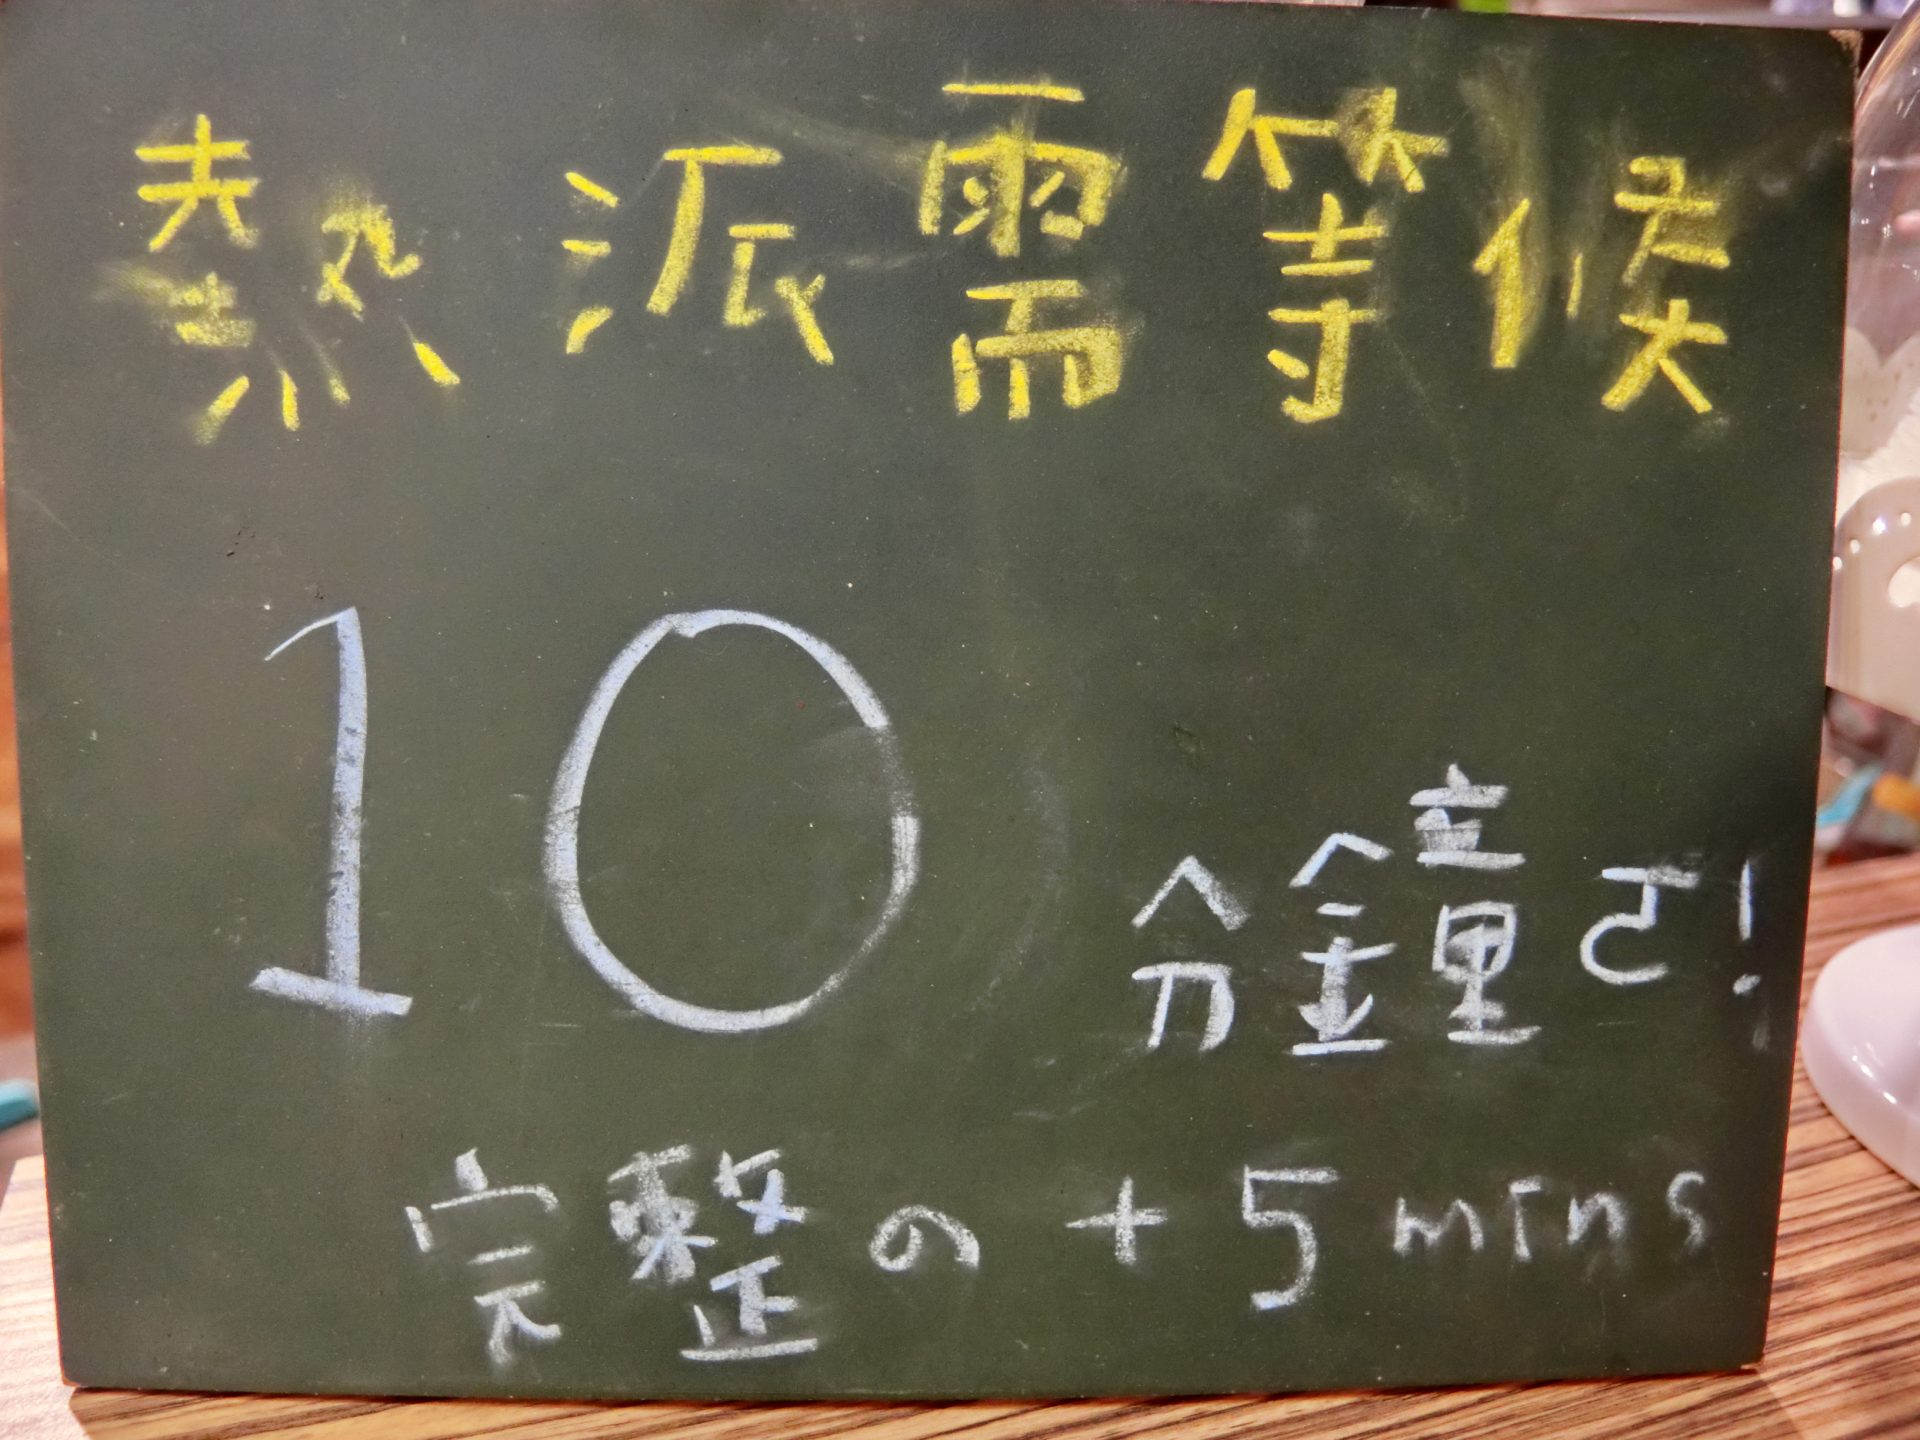 熱派需等候
10分鐘さ!
完整の+5mins